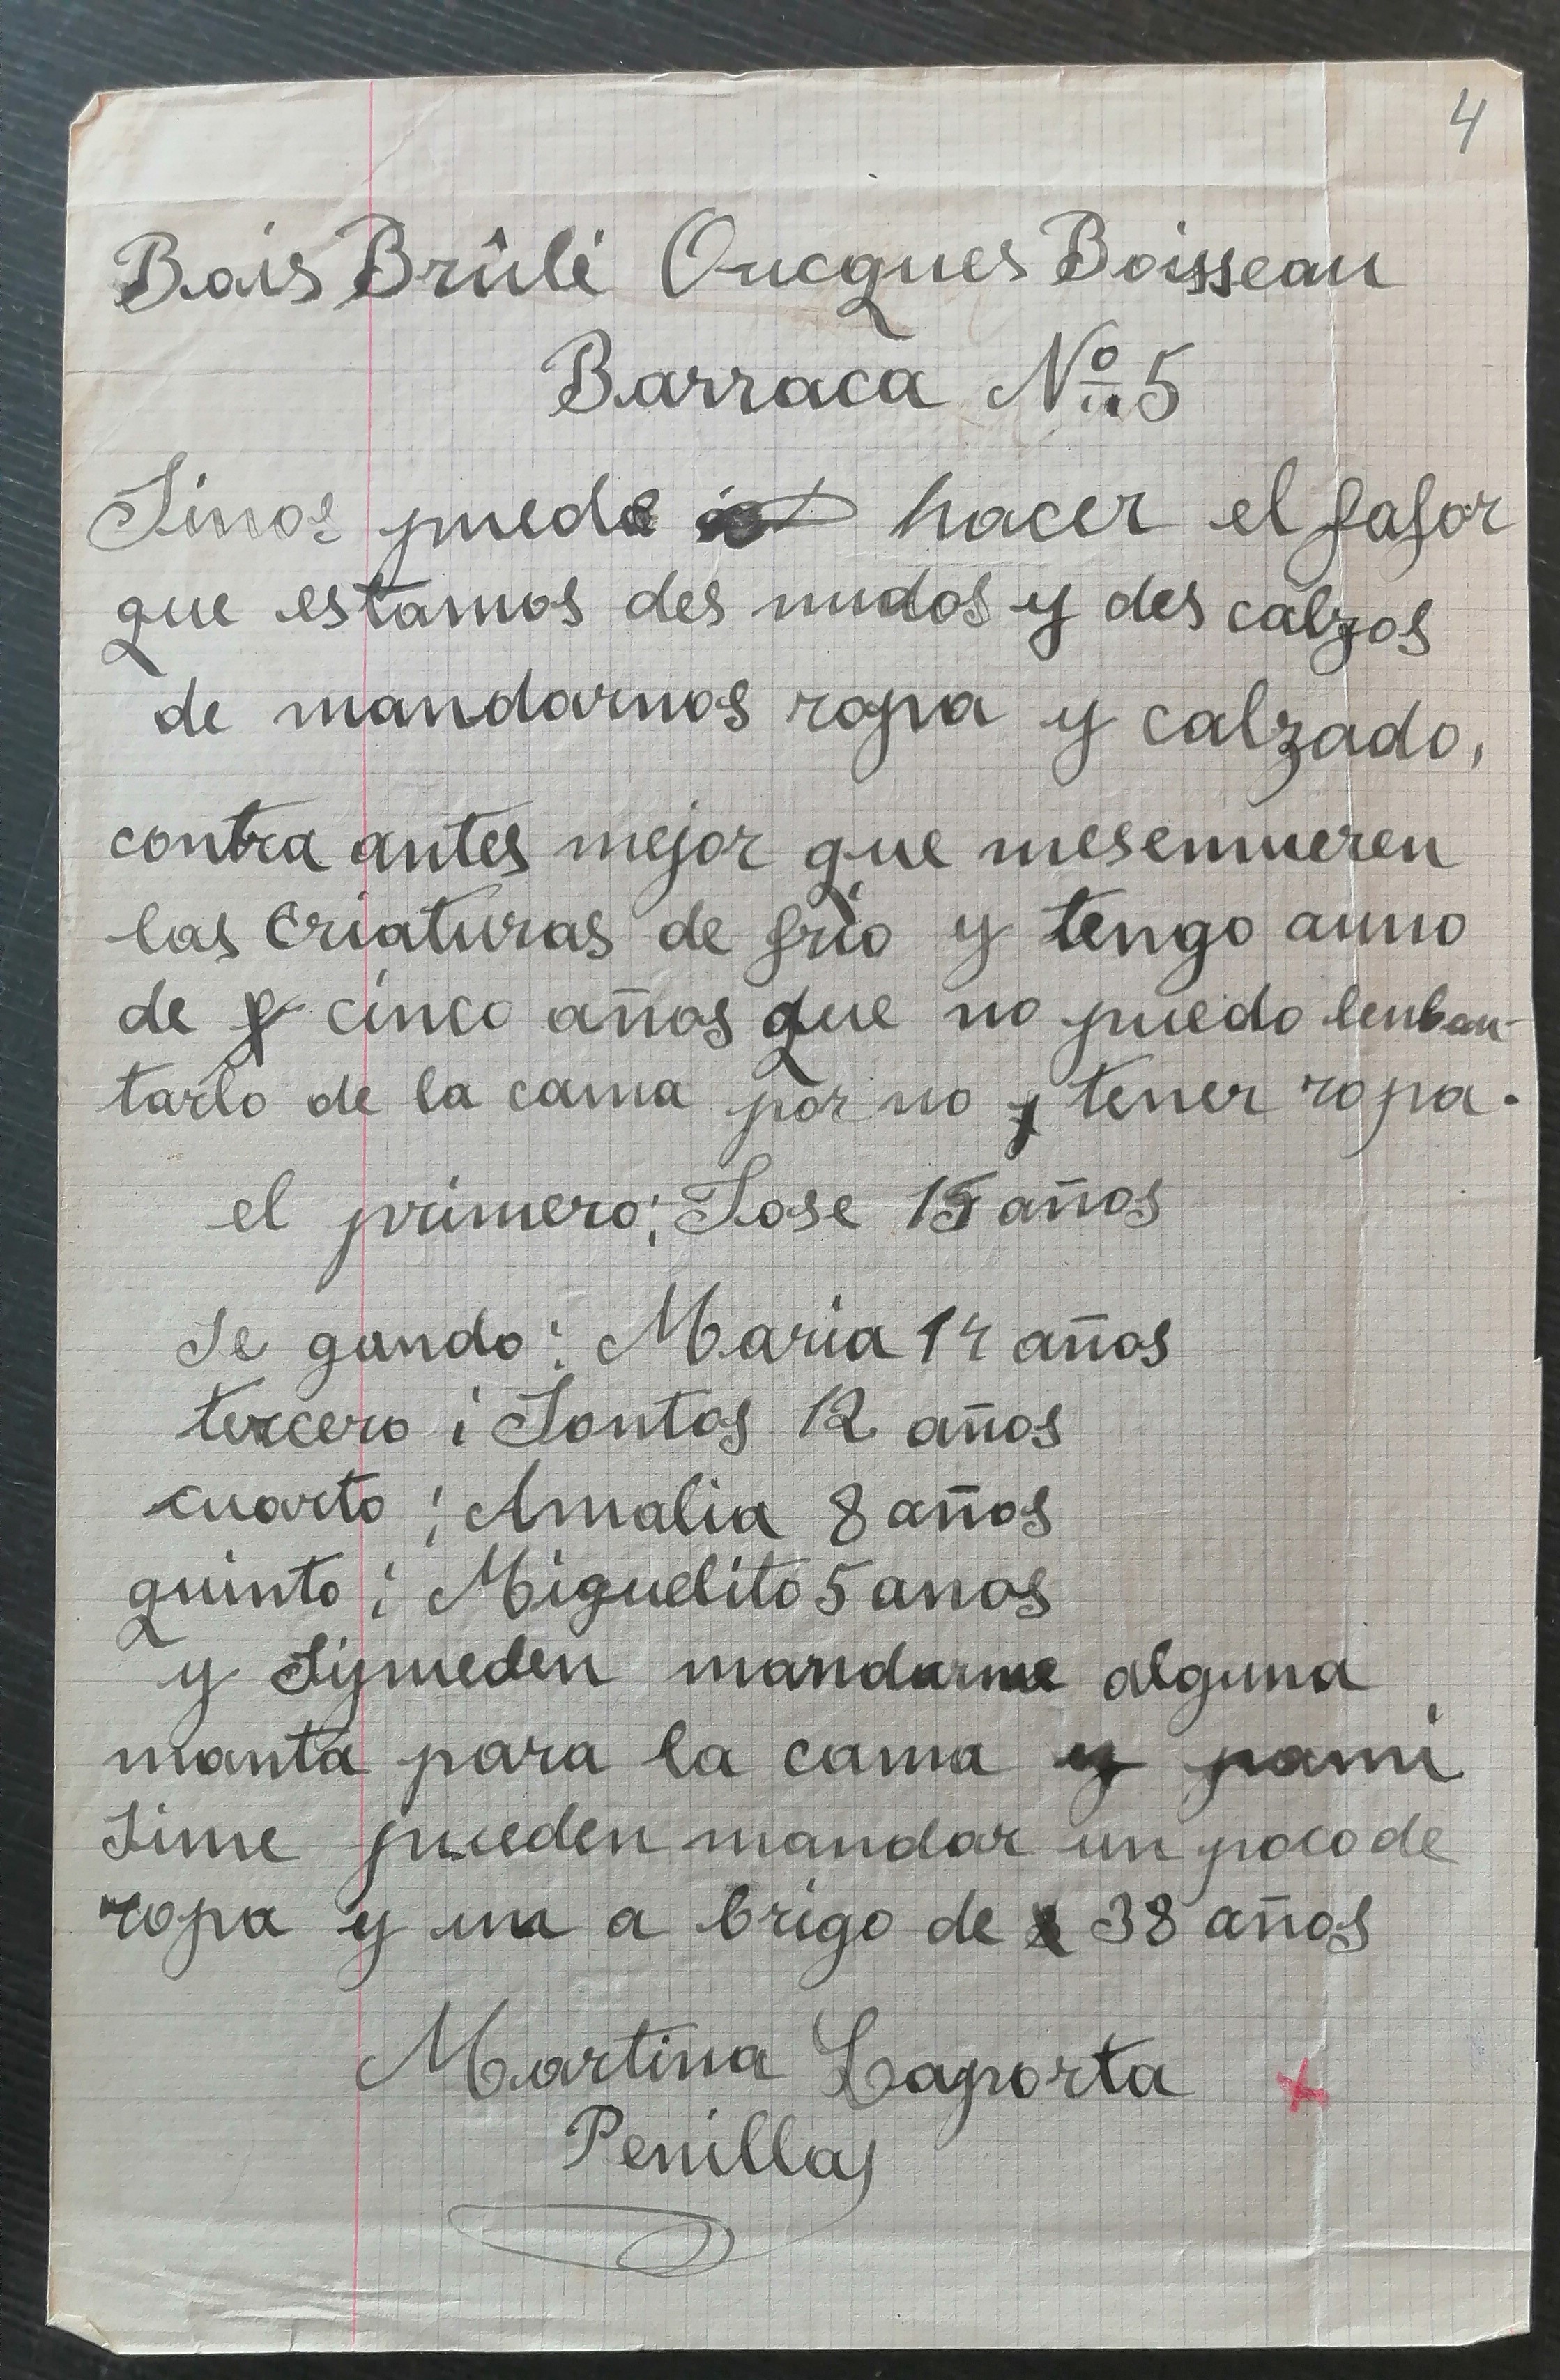 4
Bois Brûlé Oucques Boisseau
Barraca Nº 5
Sinos puede hacer el fafor
que estamos des nudos y des calzos
de mandarnos ropa y calzado,
contra antes mejor que mesemueren
las criaturas de frio y tengo auno
de cinco años que no puedo lenban-
tarlo de la cama por no tener ropa.
el primero; Jose 15 años
Se gundo; Maria 14 años
tercero; Santos 12 años
cuarto; Amalia 8 años
quinto; Miguelito 5 anos
y Sipueden mandarme alguna
manta para la cama y pami
Sime pueden mandar un poco de
ropa y un a brigo de 38 años
Martina Laporta
Penillas